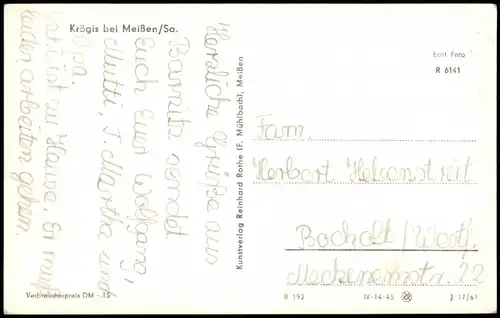 Krögis bei Meißen/Sa.
Herzliche Grüße aus
Barnitz sendet
Euch Euer Wolfgang,
Mutti, T. Martha und
Opa.
Vati ist zu Hause. Er muß
leider arbeiten gehen.
Verbraucherpreis DM -.15
Kunstverlag Reinhard Rothe (F. Mühlbach), Meißen
Echt Foto
R 6141
Fam.
Herbert Hebenstreit
Bocholt /Westf.
Meckenemstr. 22
B 192 IV-14-45 J 17/61